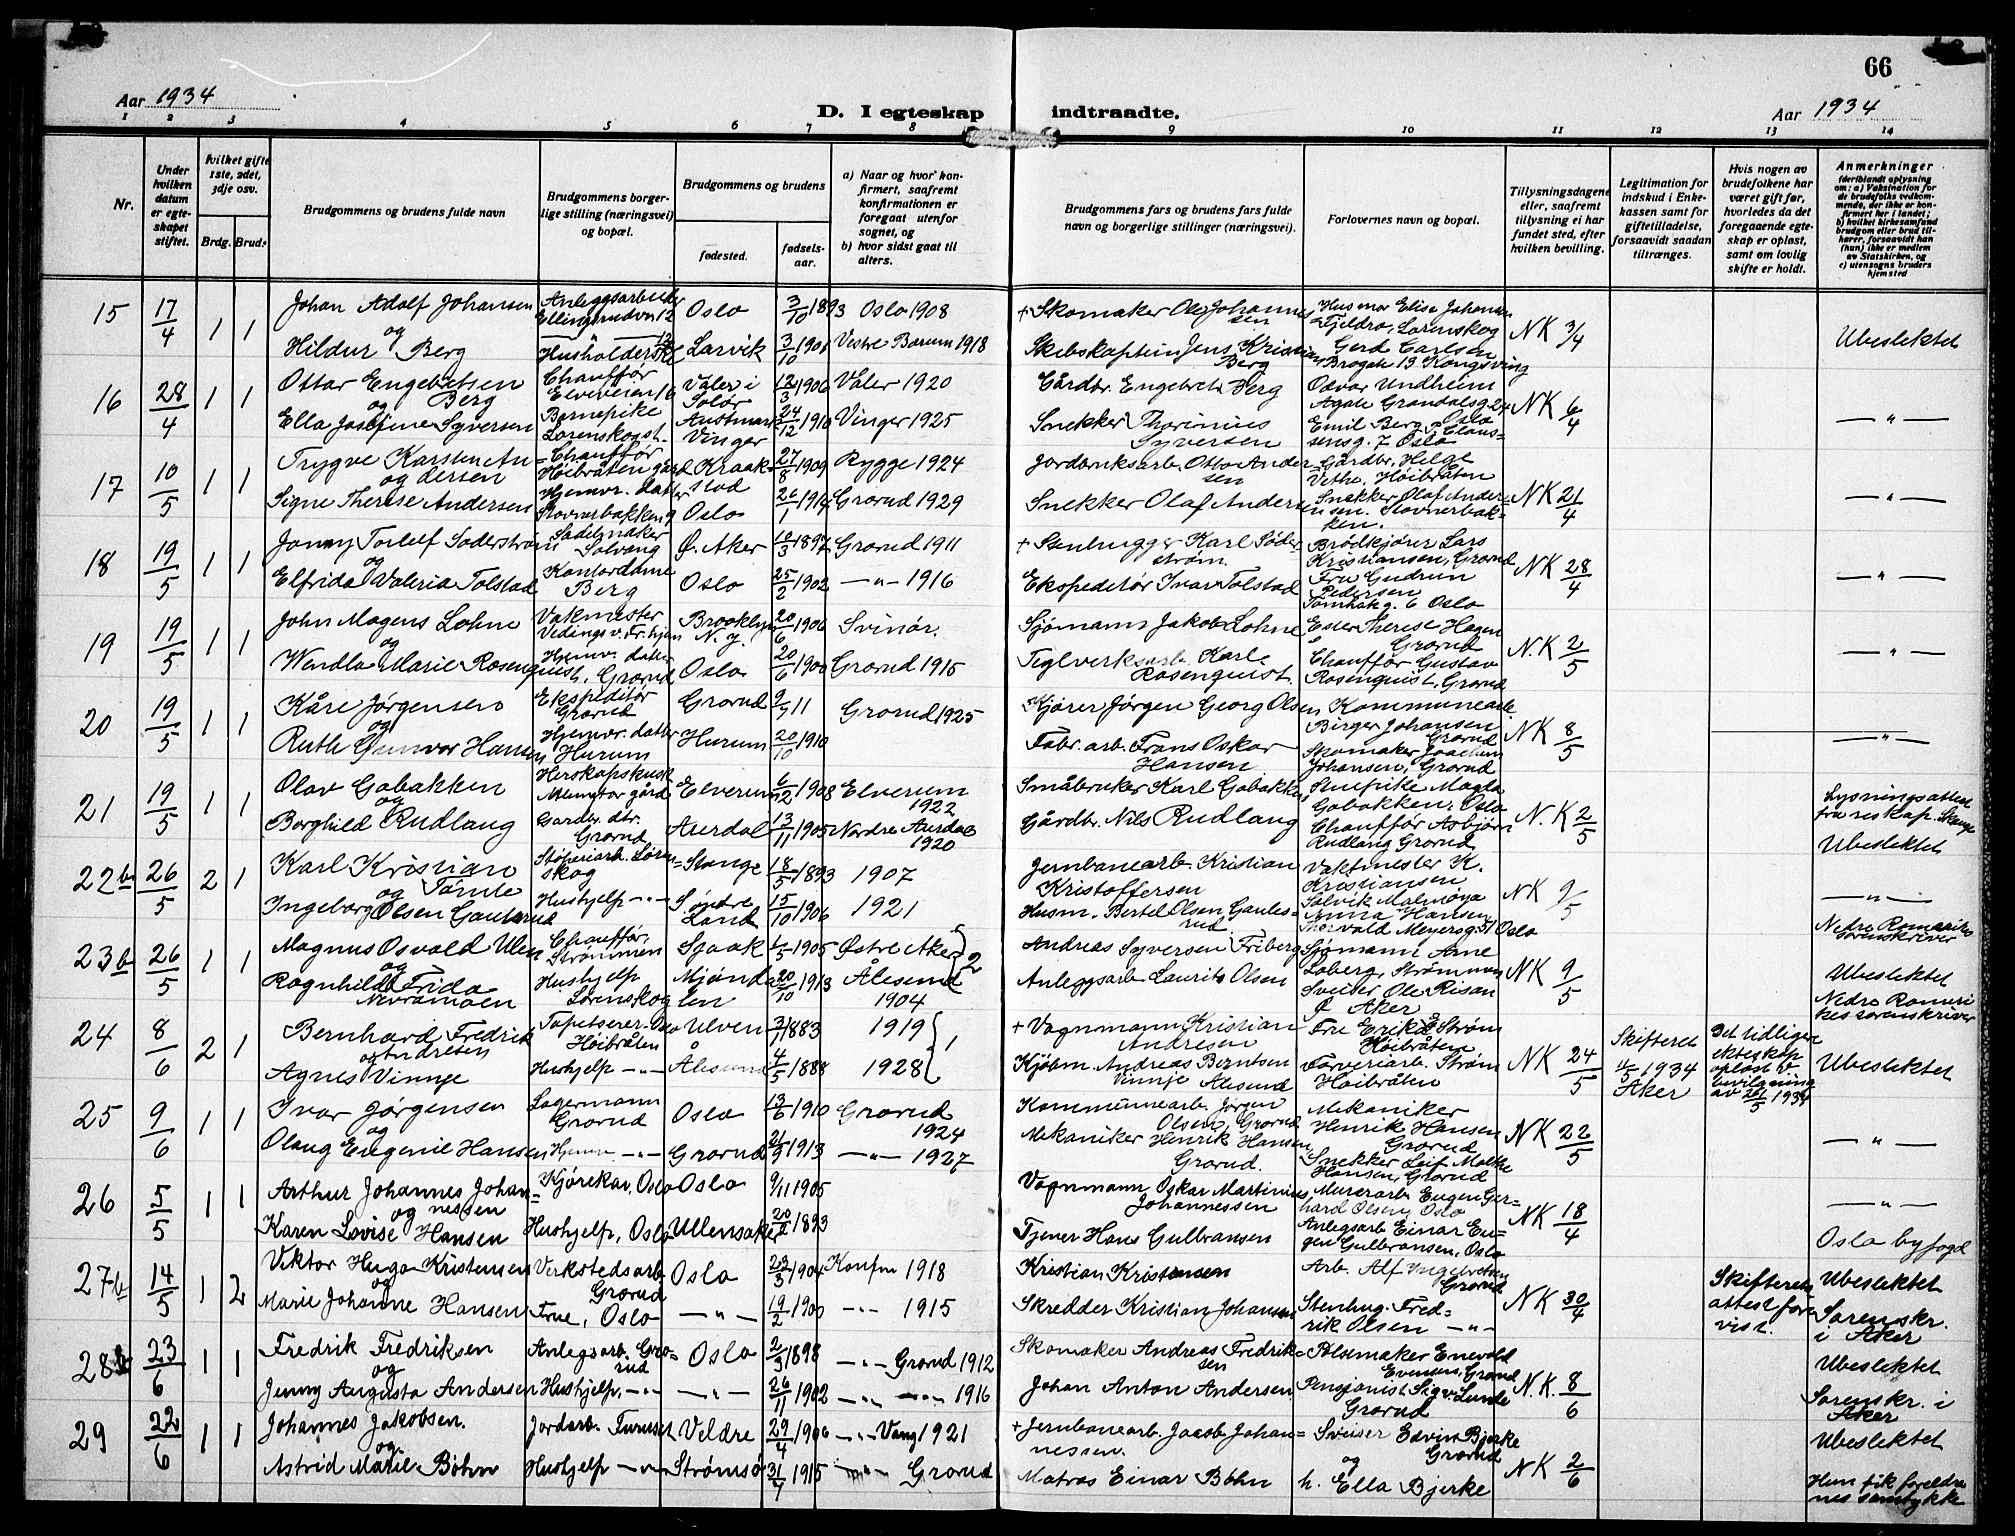 66
Aar 1934
D. I egteskap indtraadte.
Aar 1934
1 2 3 4 5 6 7 8 9 10 11 12 13 14
Nr.
Under hvilken datum er egteskapet stiftet.
hvilket gifte 1ste, 2det, 3dje osv.
Brdg. Brud.
Brudgommens og brudens fulde navn
Brudgommens borgerlige stilling (næringsvei) og bopæl.
Brudgommens og brudens
fødested.
fødselsaar.
a) Naar og hvor konfirmert, saafremt konfirmationen er foregaat utenfor sognet, og
b) hvor sidst gaat til alters.
Brudgommens fars og brudens fars fulde navn og borgerlige stillinger (næringsvei).
Forlovernes navn og bopæl.
Tillysningsdagene eller, saafremt tillysning ei har fundet sted, efter hvilken bevilling.
Legitimation for indskud i Enkekassen samt for giftetilladelse, forsaavidt saadan tiltrænges.
Hvis nogen av brudefolkene har været gift før, hvorledes da det foregaaende egteskap er opløst, samt om lovlig skifte er holdt.
Anmerkninger
(deriblandt oplysning om: a) Vaksination for de brudefolks vedkommende, der ikke er konfirmert her i landet; b) hvilket kirkesamfund brudgom eller brud tilhører, forsaavidt han (hun) ikke er medlem av Statskirken, og c) utensogns bruders hjemsted
15 17/4 1 1 Johan Adolf Johansen Anleggsarbeider Ellingsrudvn 12 Oslo 3/10 1893 Oslo 1908 + Skomaker Ole Johannessen Husmor Elise Johansen Fjeldro, Lørenskog NK 3/4 Ubeslektet
og
Hildur Berg Husholderske Larvik 3/10 1901 Vestre Bærum 1918 Skibskaptein Jens Kristian Berg Gerd Carlsen Brogate 13 Kongsving
16 28/4 1 1 Ottar Engebretsen Berg Chauffør Elveveien 16 Våler i Solør 12/3 1906 Våler 1920 Gårdbr. Engebret Berg Odvar Undheim Agate Grøndalsg. 24 Oslo NK 6/4 — " —
og
Ella Josefine Syversen Barnepike Lørenskogst. Austmarka Vinger 24/12 1910 Vinger 1925 Snekker Thorinius Syversen Emil Berg Claussensg. 7 Oslo
17 10/5 1 1 Trygve Karsten Andersen Chauffør Høibråten gård Kraakstad 27/8 1909 Rygge 1924 Jordbruksarb. Otto Andersen Gårdbr. Helge Vethe, Høibråten NK 21/4 — " —
og
Signe Therese Andersen Hjemv. datter Stovnerbakken 9 Oslo 26/1 1914 Grorud 1929 Snekker Olaf Andersen Snekker Olaf Andersen. Stovnerbakken.
18 19/5 1 1 Jonny Torleif Søderstrøm Sadelmaker Solvang Ø. Aker 10/3 1897 Grorud 1911 + Stenhugger Karl Søderstrøm. Brødkjører Lars Kristiansen, Grorud NK 28/4 — " —
og
Elfrida Valeria Tolstad Kontordame Berg Oslo 25/2 1902 — " — 1916 Ekspeditør Ivar Tolstad Fru Gudrun Pedersen 6 Oslo
19 19/5 1 1 John Magens Lohne Vakmester Brooklyn N.y. 20/6 1906 Svinør. Sjømann Jakob Lohne Ester Therese Hagen Grorud NK 2/5 — " —
og
Wendla Marie Rosenquist Hjemv. datter, Grorud Oslo 20/6 1900 Grorud 1915 Teglverksarb. Karl Rosenquist. Chauffør Gustav Rosenquist, Grorud
20 19/5 1 1 Kåre Jørgensen Ekspeditør Grorud Grorud 9/9 11 Grorud 1925 Kjører Jørgen Georg Olsen Kommunearb Birger Johansen Grorud NK 8/5 — " —
og
Ruth Gunvor Hansen Hjemv. datter Hurum Hurum 20/10 1910 Fabr. arb. Frans Oskar Hansen Skomaker Joachim Johansen, Grorud
21 19/5 1 1 Olav Gobakken Herskapskusk gård Elverum 6/12 1908 Elverum 1922 Småbruker Karl Gobakken Stuepike Magta Gobakken, Oslo N.K 2/5 Lysningsattest fra
og
Borghild Rudlang Gardbr. dtr. Grorud Aurdal 13/11 1905 Nordre Aurdal 1920 Gårdbr. Nils Rudlang Chauffør Asbjørn Rudlang Grorud Ubeslektet
22b 26/5 2 1 Karl Kristian Tømte Støperiarb. Lørenskog Stange 18/5 1893 1907 Jernbanearb. Kristian Kristoffersen Vaktmester K. Kristiansen Solvik Malmøya NK 9/5 — " —
og
Ingeborg Olsen Gaulerud Hushjelp — " — Søndre Land 15/10 1906 1921 Husm. Bertel Olsen Gaulesrud Anna Hansen Thorvald Meyersg. 51 Oslo Nedre Romerike Sorenskriver
23b 26/5 1 1 Magnus Osvald Ulen Chauffør, Strømmen Sjaak 1905 Østre Aker } 2 Andreas Syversen Friberg Sjømann Arne Loberg, Strømmen NK 9/5 Ubeslektet
og
Ragnhild Frida Nevramoen Hushjelp Lørenskog Mjøndalen 20/10 1913 Ålesund 1904 Anleggsarb. Laurits Olsen Sveiser Ole Risan Ø. Aker Nedre Romerikes sorenskriver
24 8/6 2 1 Bernhard Fredrik Andresen Tapetserer Høibråten Ulven 1883 1919 } 1 + Vognmann Kristian Andresen Fru Strøm Høibråten NK 24/5 Skifteret 1934 Aker Det tidligere ekteskap opløst v. bevilgning av 26/5 1934 Ubeslektet
og
Agnes Vinnje Hushjelp — " — Ålesund 4/5 1888 1928 Kjøbm. Andreas Berntsen Vinnje Ålesund Farveriarb. Strøm Høibråten
25 9/6 1 1 Ivar Jørgensen Lagermann Grorud Oslo 13/6 1910 Grorud 1924 Kommunearb. Jørgen Olsen, Grorud Mekaniker Henrik Hansen Grorud NK 22/5 — " —
og
Olaug Eugenie Hansen Hjemv. — " — Grorud 21/9 1913 — " — 1927 Mekaniker Henrik Hansen, Grorud. Snekker Leif Hansen, Grorud
26 5/5 1 1 Arthur Johannes Johannessen Kjørekar, Oslo Oslo 9/11 1905 Vognmann Oskar Martinius Johannessen Murerarb. Eugen Gerhard Olsen, Oslo NK 18/4 — " —
og
Karen Lovise Hansen Hushjelp, Oslo Ullensaker 20/2 1893 Tjener Hans Gulbransen Anlegsarb. Einar Eugen Gulbransen, Oslo Oslo byfogd
27b 14/5 1 2 Viktor Hugo Kristensen Verkstedsarb Grorud Oslo 22/3 1904 Konfm 1918 Kristian Kristensen Arb. Alf Ingebretsen Grorud NK 30/4 Skifterets attest forevist. Ubeslektet
og
Marie Johanne Hansen Frue, Oslo — " — 19/2 1900 — " — 1915 Skredder Kristian Johansen Stenhug. Fredrik Olsen — " — Sorenskr. i Aker
28b 23/6 1 1 Fredrik Fredriksen Anlegsarb. Grorud Oslo 2/3 1898 — " — Grorud 1912 Skomaker Andreas Fredriksen Pølsemaker Enevold Evensen, Grorud N.K. 8/6 Ubeslektet
og
Jenny Augusta Andersen Hushjelp, — " — — " — 26/11 1902 — " — 1916 Johan Anton Andersen Pensjonist Sigv. Lunde Grorud Sorenskr. i Aker
29 22/6 1 1 Johannes Jakobsen. Jordarb. Furuset Veldre 29/4 1906 — " — Vang 1921 + Jernbanearb. Jacob Johannessen. Sveiser Edvin Bjerke Grorud NK 2/6 Ubeslektet
og
Astrid Marie Bøhn Hushjelp — " — Strømsø 1915 — " — Grorud Matros Einar Bøhn og h. Ella Bjerke Hun fik foreldrenes samtykke